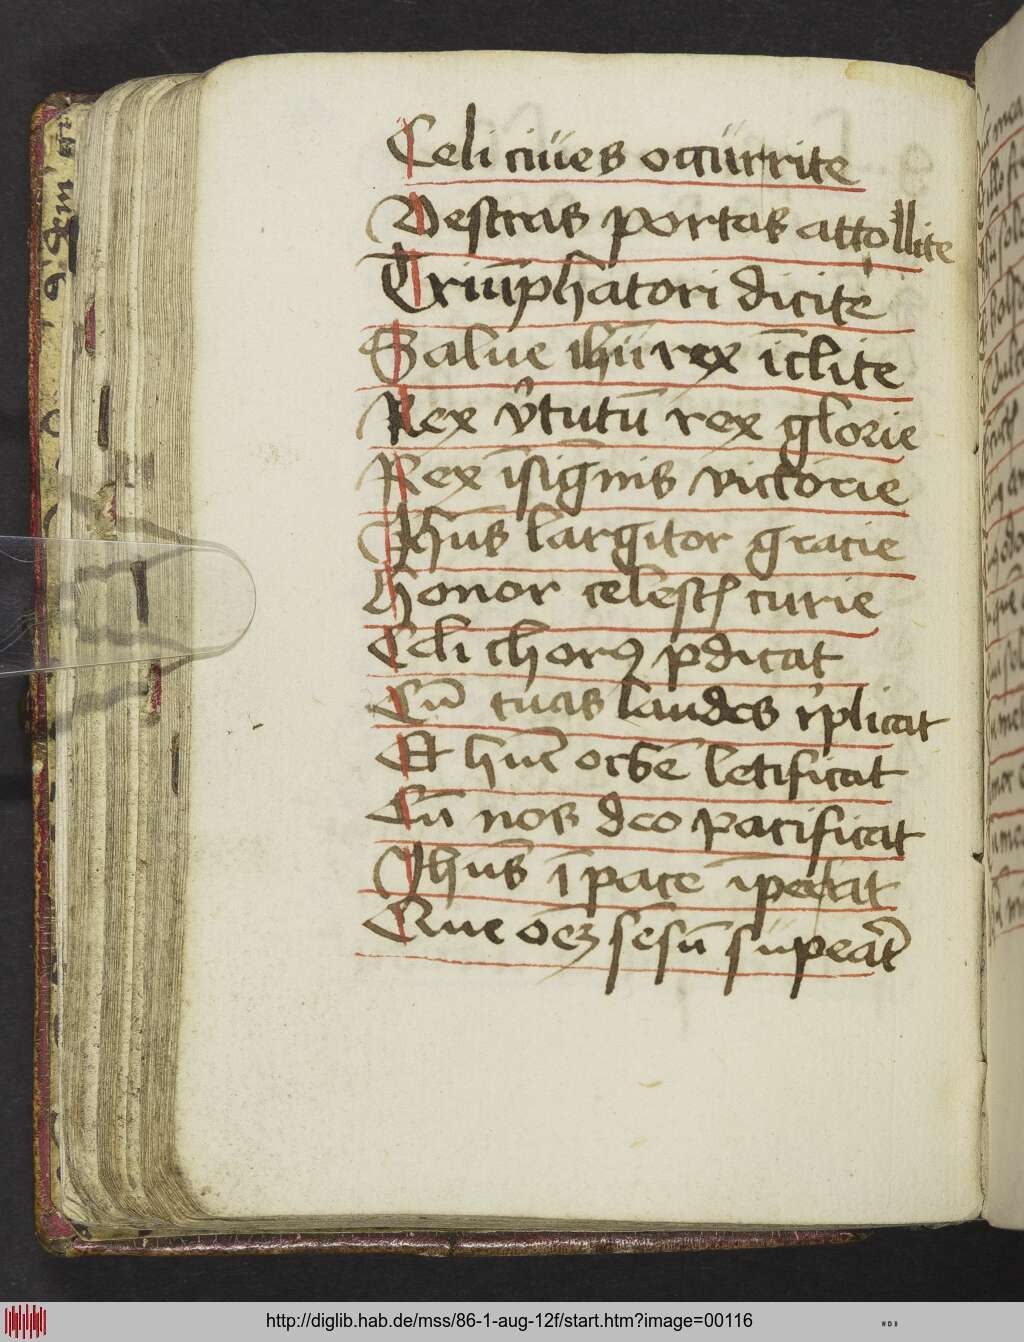 Celi ciues occurrite
Vestras portas attollite
Triūphatori dicite
Salue ihū rex īclite
Rex v̓tutū rex glorie
Rex īsignis victorie
Ihūs largitor gracie
Honor celestꝭ curie
Celi chorꝰ p̄dicat
Cū tuas laudes r̓plicat
Et hūc orbē letificat
Cū nos deo pacificat
Ihūs ī pace īperat
Que oēꝫ sēsū supeāt
http://diglib.hab.de/mss/86-1-aug-12f/start.htm?image=00116